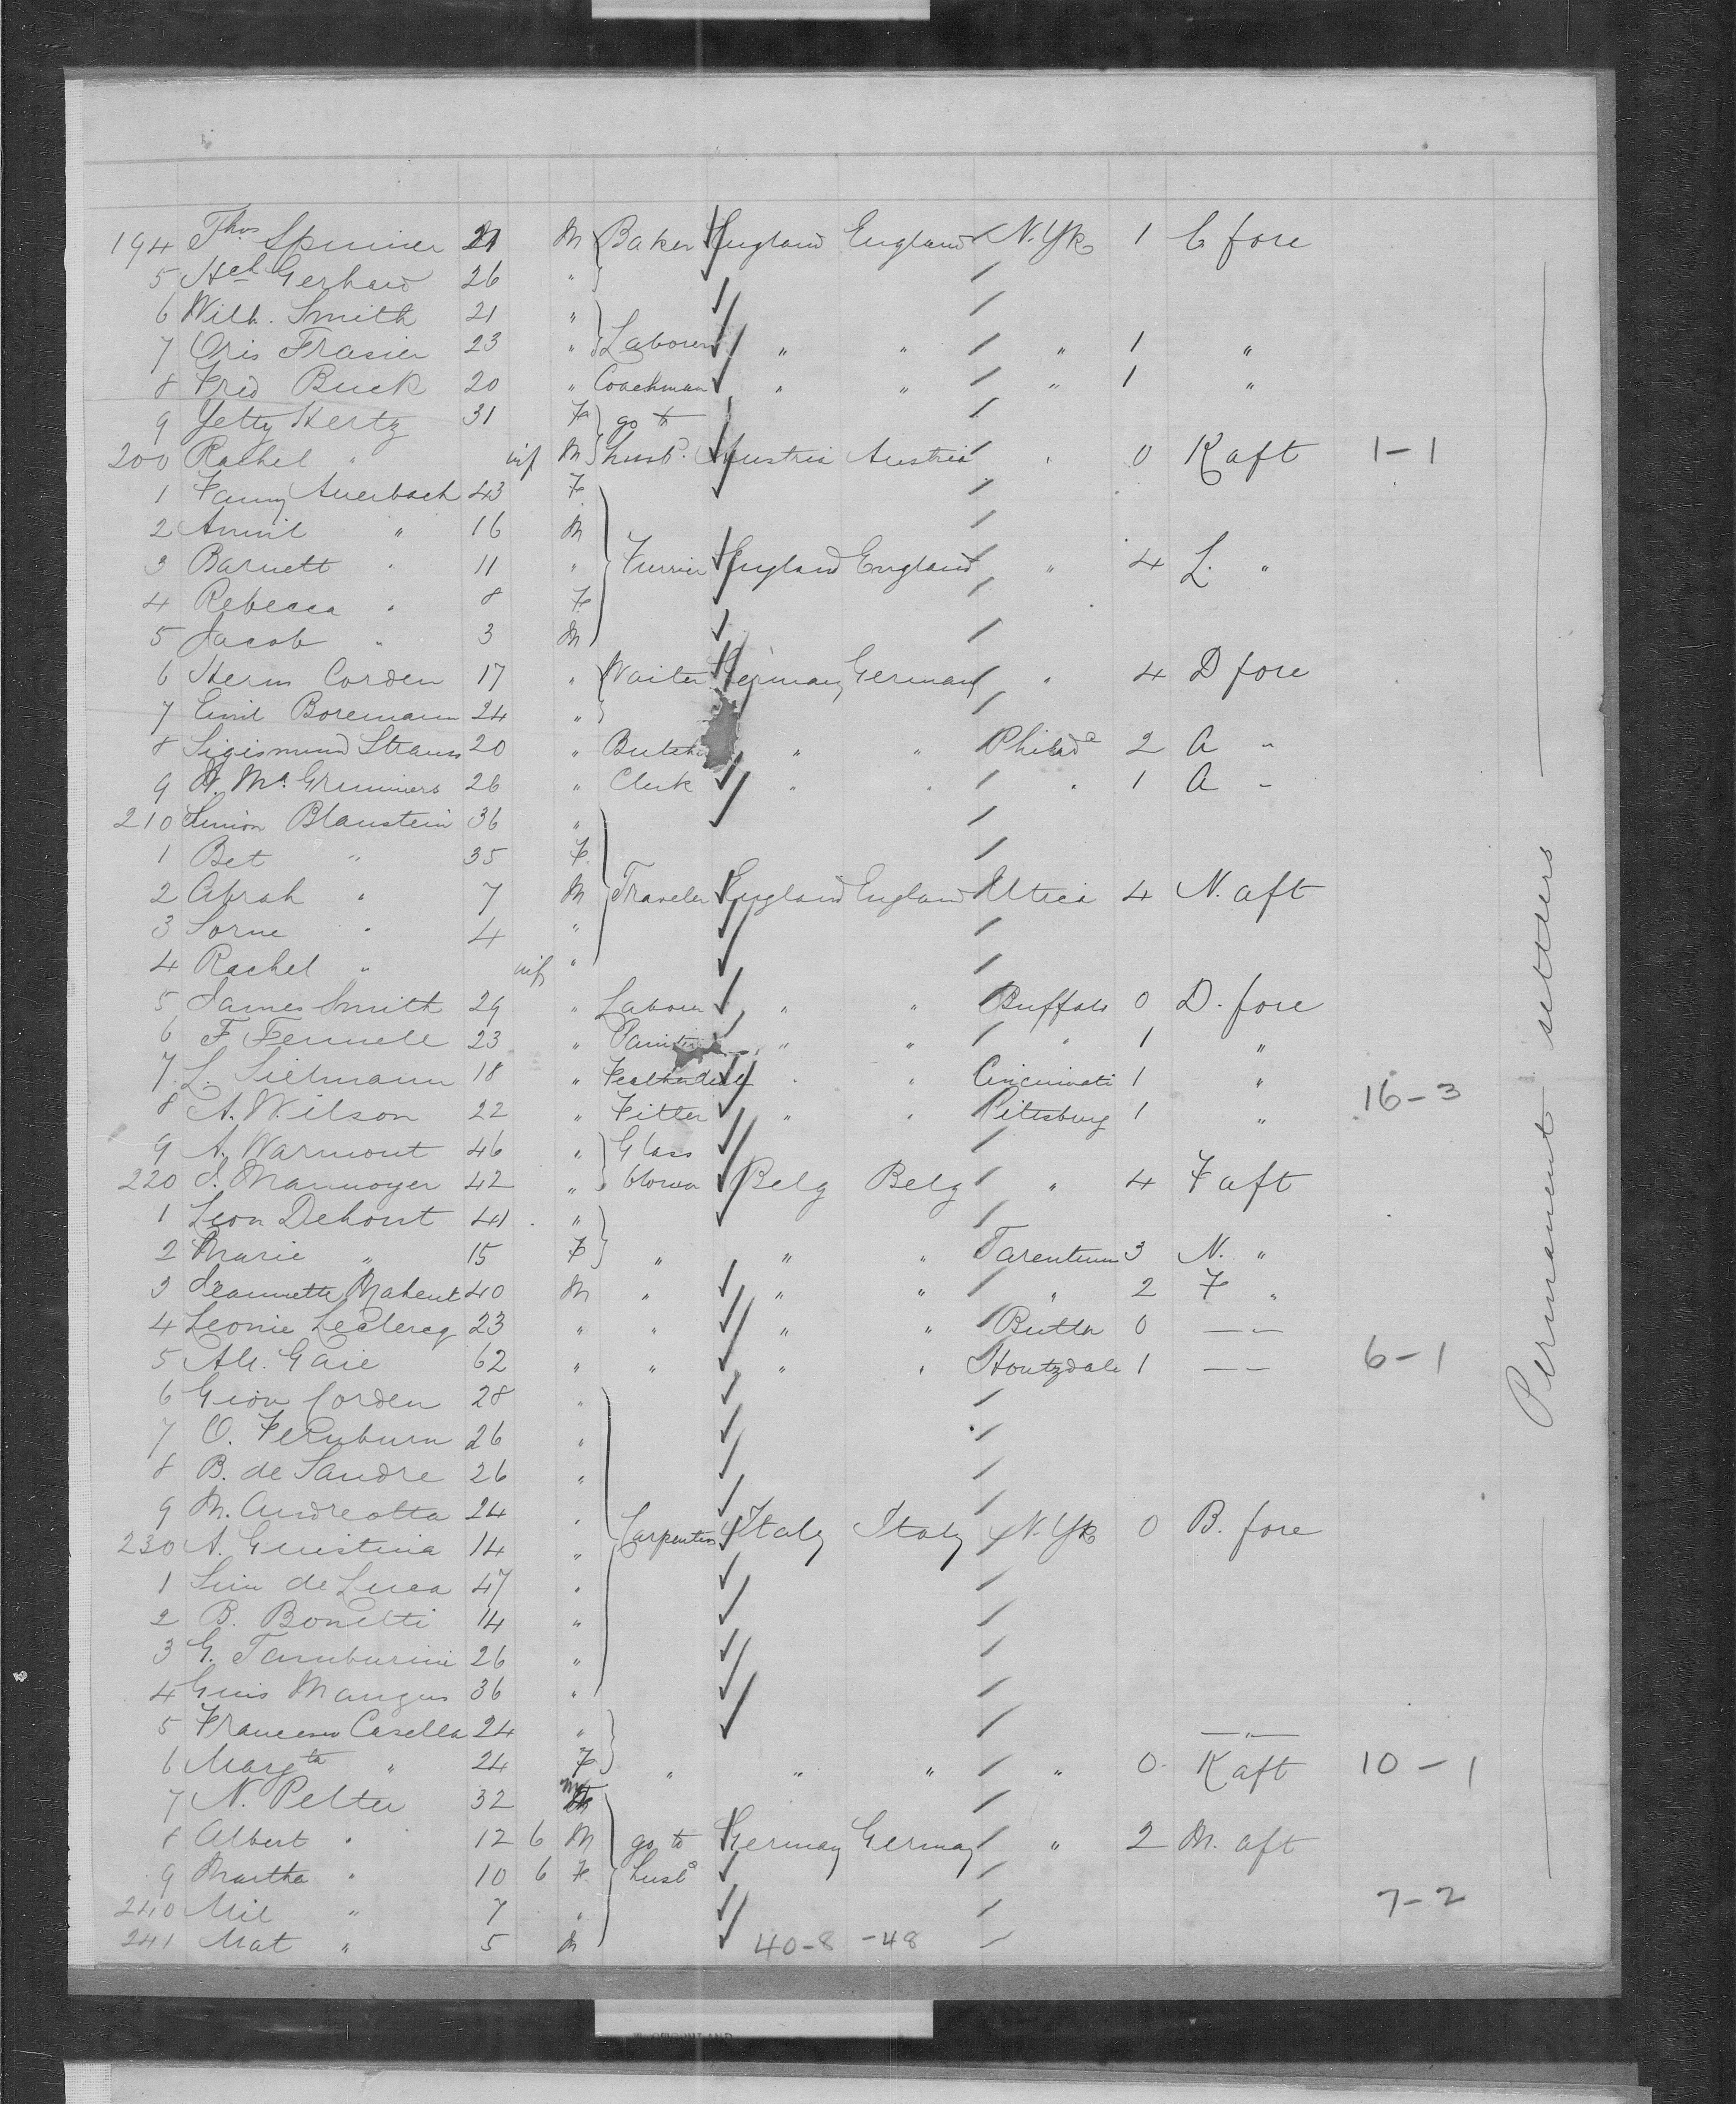 194 Thos Spinner 21 M Baker England England N.Yk 1 C fore
5 Hch Gerhard 26 "
6 Wilh. Smith 21 "
7 Cris Frasier 23 " Laborer " " " 1 "
8 Fred Buck 20 " Coachman " " " 1 "
9 Yetty Hertz 31 F go to
200 Rachel " inf M husb. Austria Austria " 0 K aft 1-1
1 Fanny Auerbach 43 F
2 " 16 M
3 Barnett " 11 " Furrier England England " 4 L. "
4 Rebecca " 8 F
5 Jacob " 3 M
6 Herm Corden 17 " Waiter Germany Germany " 4 D fore
7 Emil Boremann 24 "
8 Sigismund Strauss 20 " Butcher " " Philada 2 A "
9 26 " Clerk " " " 1 A "
210 Simon Blaustein 36 "
1 Bet " 35 F
2 Abrah " 7 M Traveler England England Utica 4 N. aft
3 Sorne " 4 "
4 Rachel " inf "
5 James Smith 29 " Laborer " " Buffalo 0 D. fore
6 F Fennell 23 " Painter " " " 1 "
7 L. Sielmann 18 " " " Cincinnati 1 "
8 A. Wilson 22 " Fitter " " Pittsburg 1 " 16-3
9 A. Warmont 46 " Glass
220 J. Marmoyer 42 " blower Belg Belg " 4 F aft
1 Leon Dehout 41 "
2 Marie " 15 F " " " Tarentum 3 N. "
3 Jeannette Mahent 40 M " " " " 2 F "
4 Leonie Leclercq 23 " " " " Butler 0 — " —
5 Alr. Gaie 62 " " " " Houtzdale 1 — " — 6-1
6 Corden 28 "
7 O. Fernburn 26 "
8 B. de Sandre 26 "
9 M. Andreotta 24 " Carpenters Italy Italy N.Yk 0 B. fore
230 A. Guistina 14 "
1 de Luca 47 "
2 B. Bonetti 14 "
3 G. Tamburini 26 "
4 Guis Mangus 36 "
5 Francesco Casella 24 " — " —
6 Margta " 24 F " " " " 0 K aft 10-1
7 N. Pelter 32
8 Albert " 12 6 M go to Germany Germany " 2 M. aft
9 Martha " 10 6 F husb
240 Mil " 7 " 7-2
241 Mat " 5 M 40-8 -48
Permanent settlers